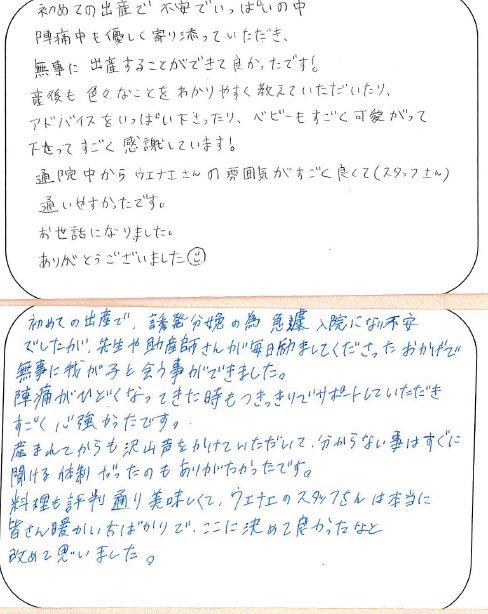 初めての出産で不安でいっぱいの中
陣痛中も優しく寄り添っていただき、
無事に出産することができて良かったです!
産後も色々なことをわかりやすく教えていただいたり、
アドバイスをいっぱい下さったり、ベビーもすごく可愛がって
下さってすごく感謝しています!
通院中からウエナエさんの雰囲気がすごく良くて(スタッフさん)
通いやすかったです。
お世話になりました。
ありがとうございました☺
初めての出産で、誘発分娩の為急遽入院になり不安
でしたが、先生や助産師さんが毎日励ましてくださったおかげで
無事に我が子と会う事ができました。
陣痛がひどくなってきた時もつきっきりでサポートしていただき
すごく心強かったです。
産まれてからも沢山声をかけていただいて、分からない事はすぐに
聞ける体制だったのもありがたかったです。
料理も評判通り美味しくて、ウエナエのスタッフさんは本当に
皆さん暖かい方ばかりで、ここに決めて良かったなと
改めて思いました。